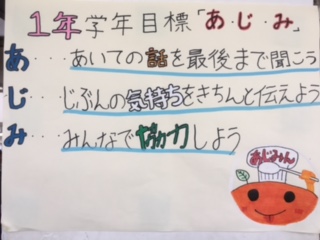 1年学年目標「あ・じ・み」
あ・・・あいての話を最後まで聞こう
じ・・・じぶんの気持ちをきちんと伝えよう
み・・・みんなで協力しよう
あじみん